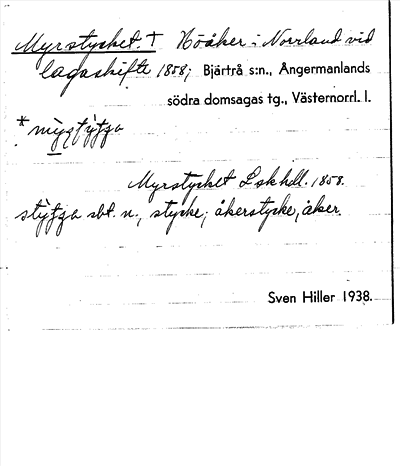 Myrstycket. † Höåker i Norrland vid
lagaskifte 1858; Bjärtrå s:n., Ångermanlands
södra domsagas tg., Västernorrl. l.
Myrstycket Lskhdl. 1858.
sbt. n., stycke; åkerstycke, åker.
Sven Hiller 1938.